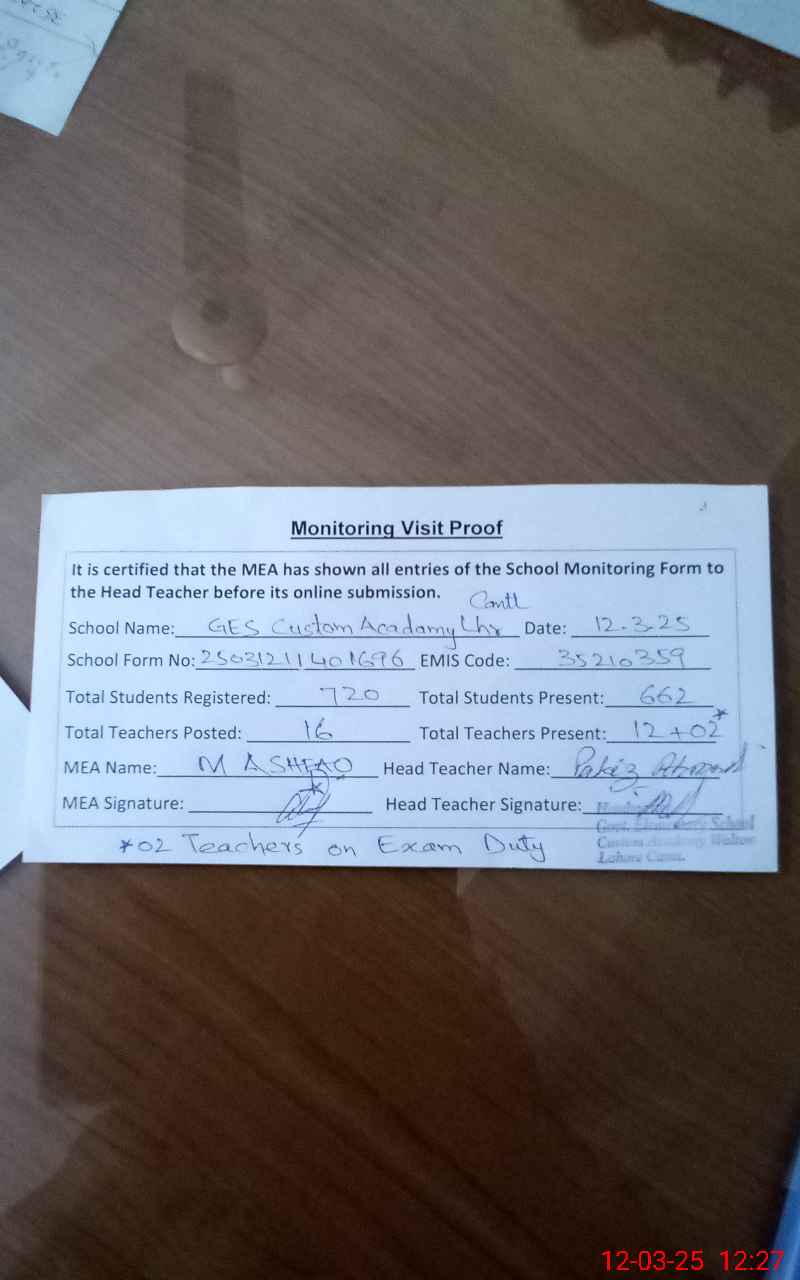 Monitoring Visit Proof
It is certified that the MEA has shown all entries of the School Monitoring Form to
the Head Teacher before its online submission.
Cantt
School Name: GES Custom Acadamy Lhr Date: 12-3-25
School Form No: 25031211401696 EMIS Code: 35210359
Total Students Registered: 720 Total Students Present: 662
Total Teachers Posted: 16 Total Teachers Present: 12+02*
MEA Name: M ASHFAQ Head Teacher Name:
MEA Signature: Head Teacher Signature:
Govt. Elementary School
Custom Academy Walton
Lahore Cantt.
*02 Teachers on Exam Duty
12-03-25 12:27